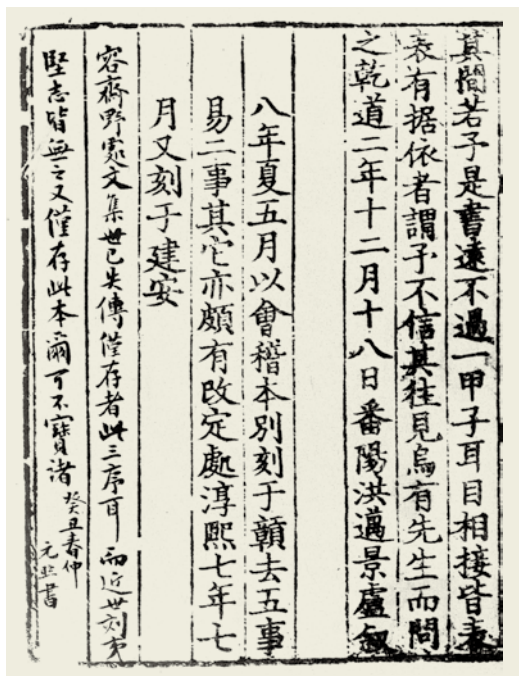 其間若予是書遠不過一甲子耳目相接皆表
表有据依者謂予不信其往見烏有先生而問
之乾道二年十二月十八日番陽洪邁景盧敘
八年夏五月以會稽本別刻于贛去五事
易二事其它亦頗有改定處淳熙七年七
月又刻于建安
容齋野處文集世已失傳僅存者此三序耳而近世刻夷
堅志皆無之又僅存此本爾可不寶諸癸丑春仲
元照書